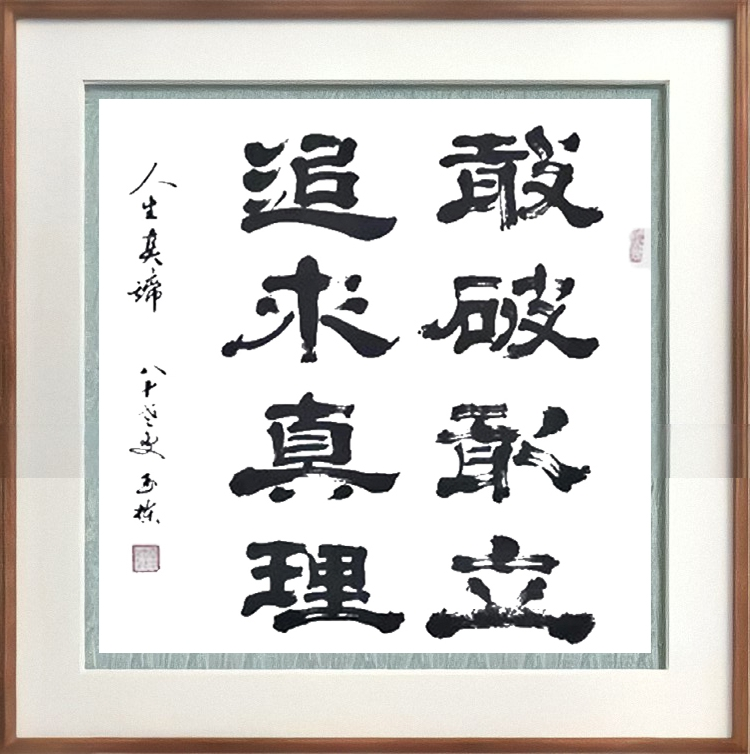 敢破敢立
追求真理
人生真谛 八十老叟